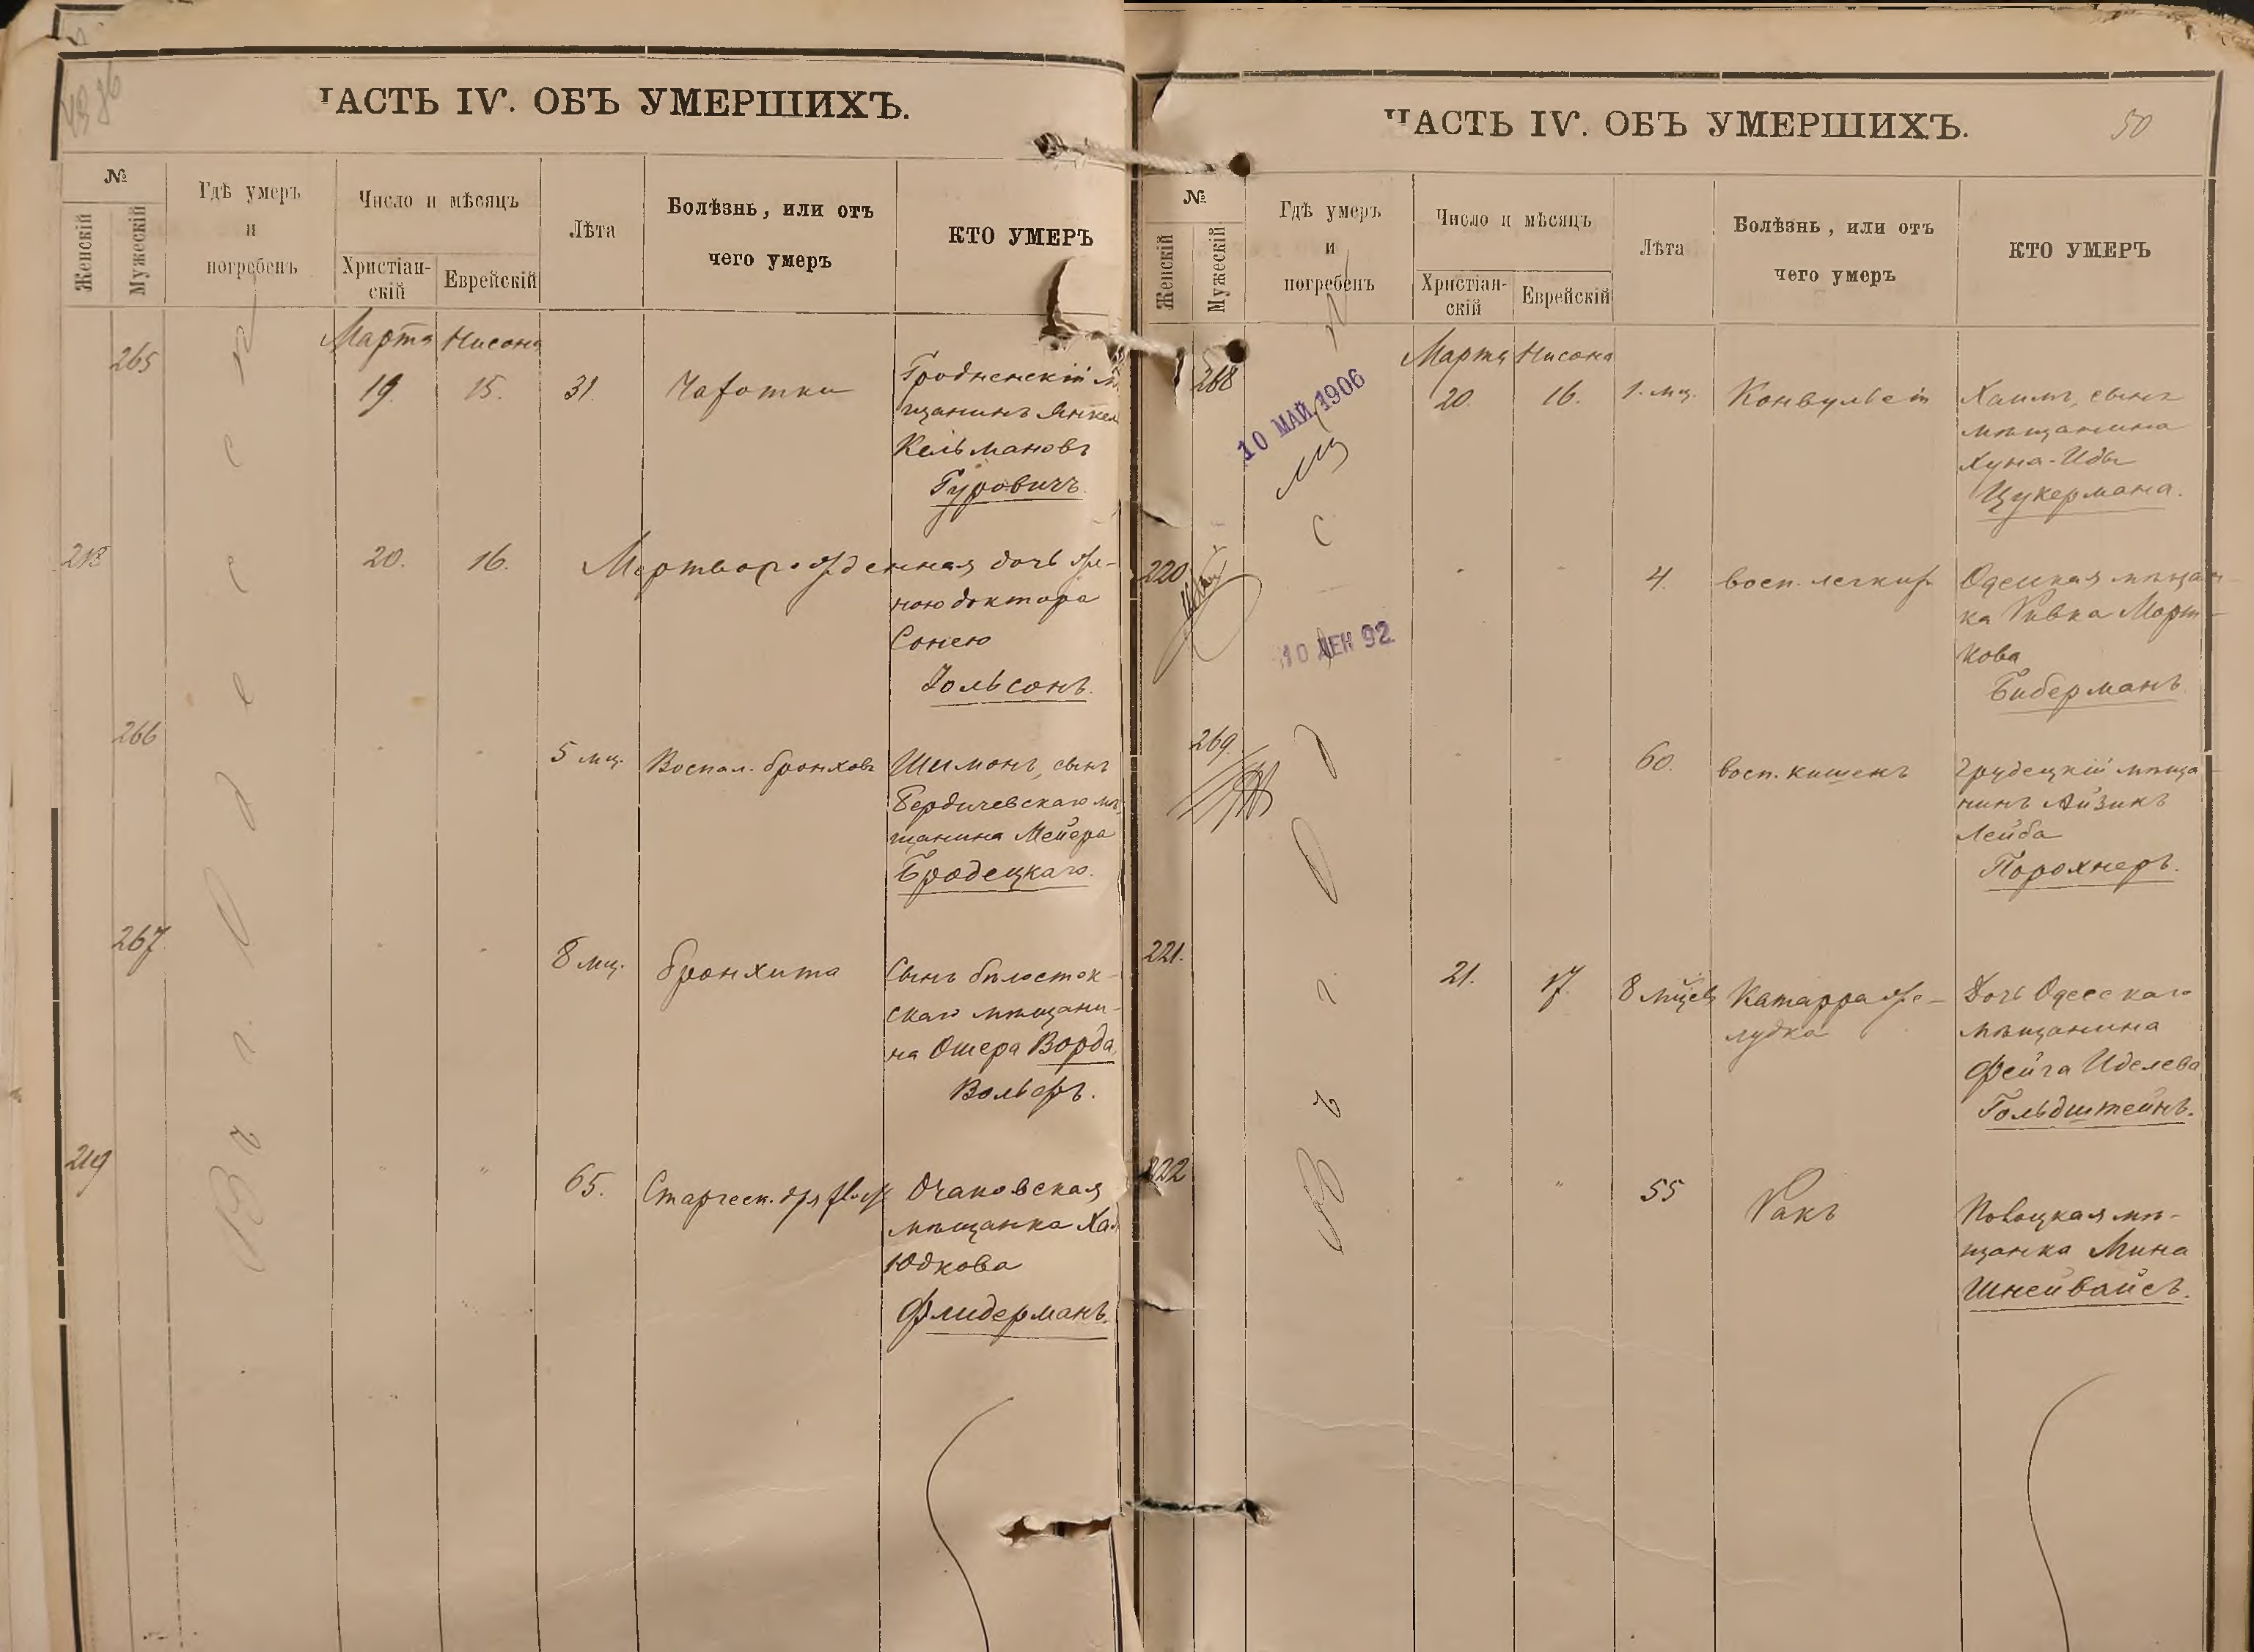 ЧАСТЬ IV. ОБЪ УМЕРШИХЪ.
№
Женскій
Мужескій
Гдѣ умеръ
и
погребенъ
Число и мѣсяцъ
Христіан-
скій
Еврейскій
Лѣта
Болѣзнь, или отъ
чего умеръ
КТО УМЕРЪ
Въ г. Одессѣ
Марта Нисона
265
19. 15. 31. Чахотки
Гродненскій мѣ
щанинъ Янкел
Кельмановъ
Гуровичъ.
218
20. 16. Мертворожденная дочь же-
ною доктора
Сонею
Хольсонъ.
266
5 мц. Воспал. бронховъ
Шимонъ, сынъ
Бердичевскаго мѣ
щанина Мейера
Бродецкаго.
267
8 мц. бронхита
Сынъ бѣлосток-
скаго мѣщани-
на Ошера Ворда
Вольфъ.
219
65. Старческ.
Очаковская
мѣщанка
Юдкова
Флидерманъ.
ЧАСТЬ IV. ОБЪ УМЕРШИХЪ.
50
№
Женскій
Мужескій
Гдѣ умеръ
и
погребенъ
Число и мѣсяцъ
Христіан-
скій
Еврейскій
Лѣта
Болѣзнь, или отъ
чего умеръ
КТО УМЕРЪ
10 МАЙ 1906
10 ДЕК 92
Въ г. Одессѣ
Марта Нисона
268
20. 16. 1. мц. Конвульсіи
Хаимъ, сынъ
мѣщанина
Хуна-Иды
Цукермана.
220
4. восп. легких
Одесская мѣщан
ка Ривка Морт-
кова
Биберманъ
269
60. восп. кишекъ
Грудецкій мѣща-
нинъ Айзикъ
Лейба
Порохнеръ.
221.
21. 17. 8 мцев Катарра же-
лудка
Дочь Одесскаго
мѣщанина
Фейга Иделева
Гольдштейнъ.
222
55 Ракъ
мѣ-
щанка Мина
Шнейвайсъ.